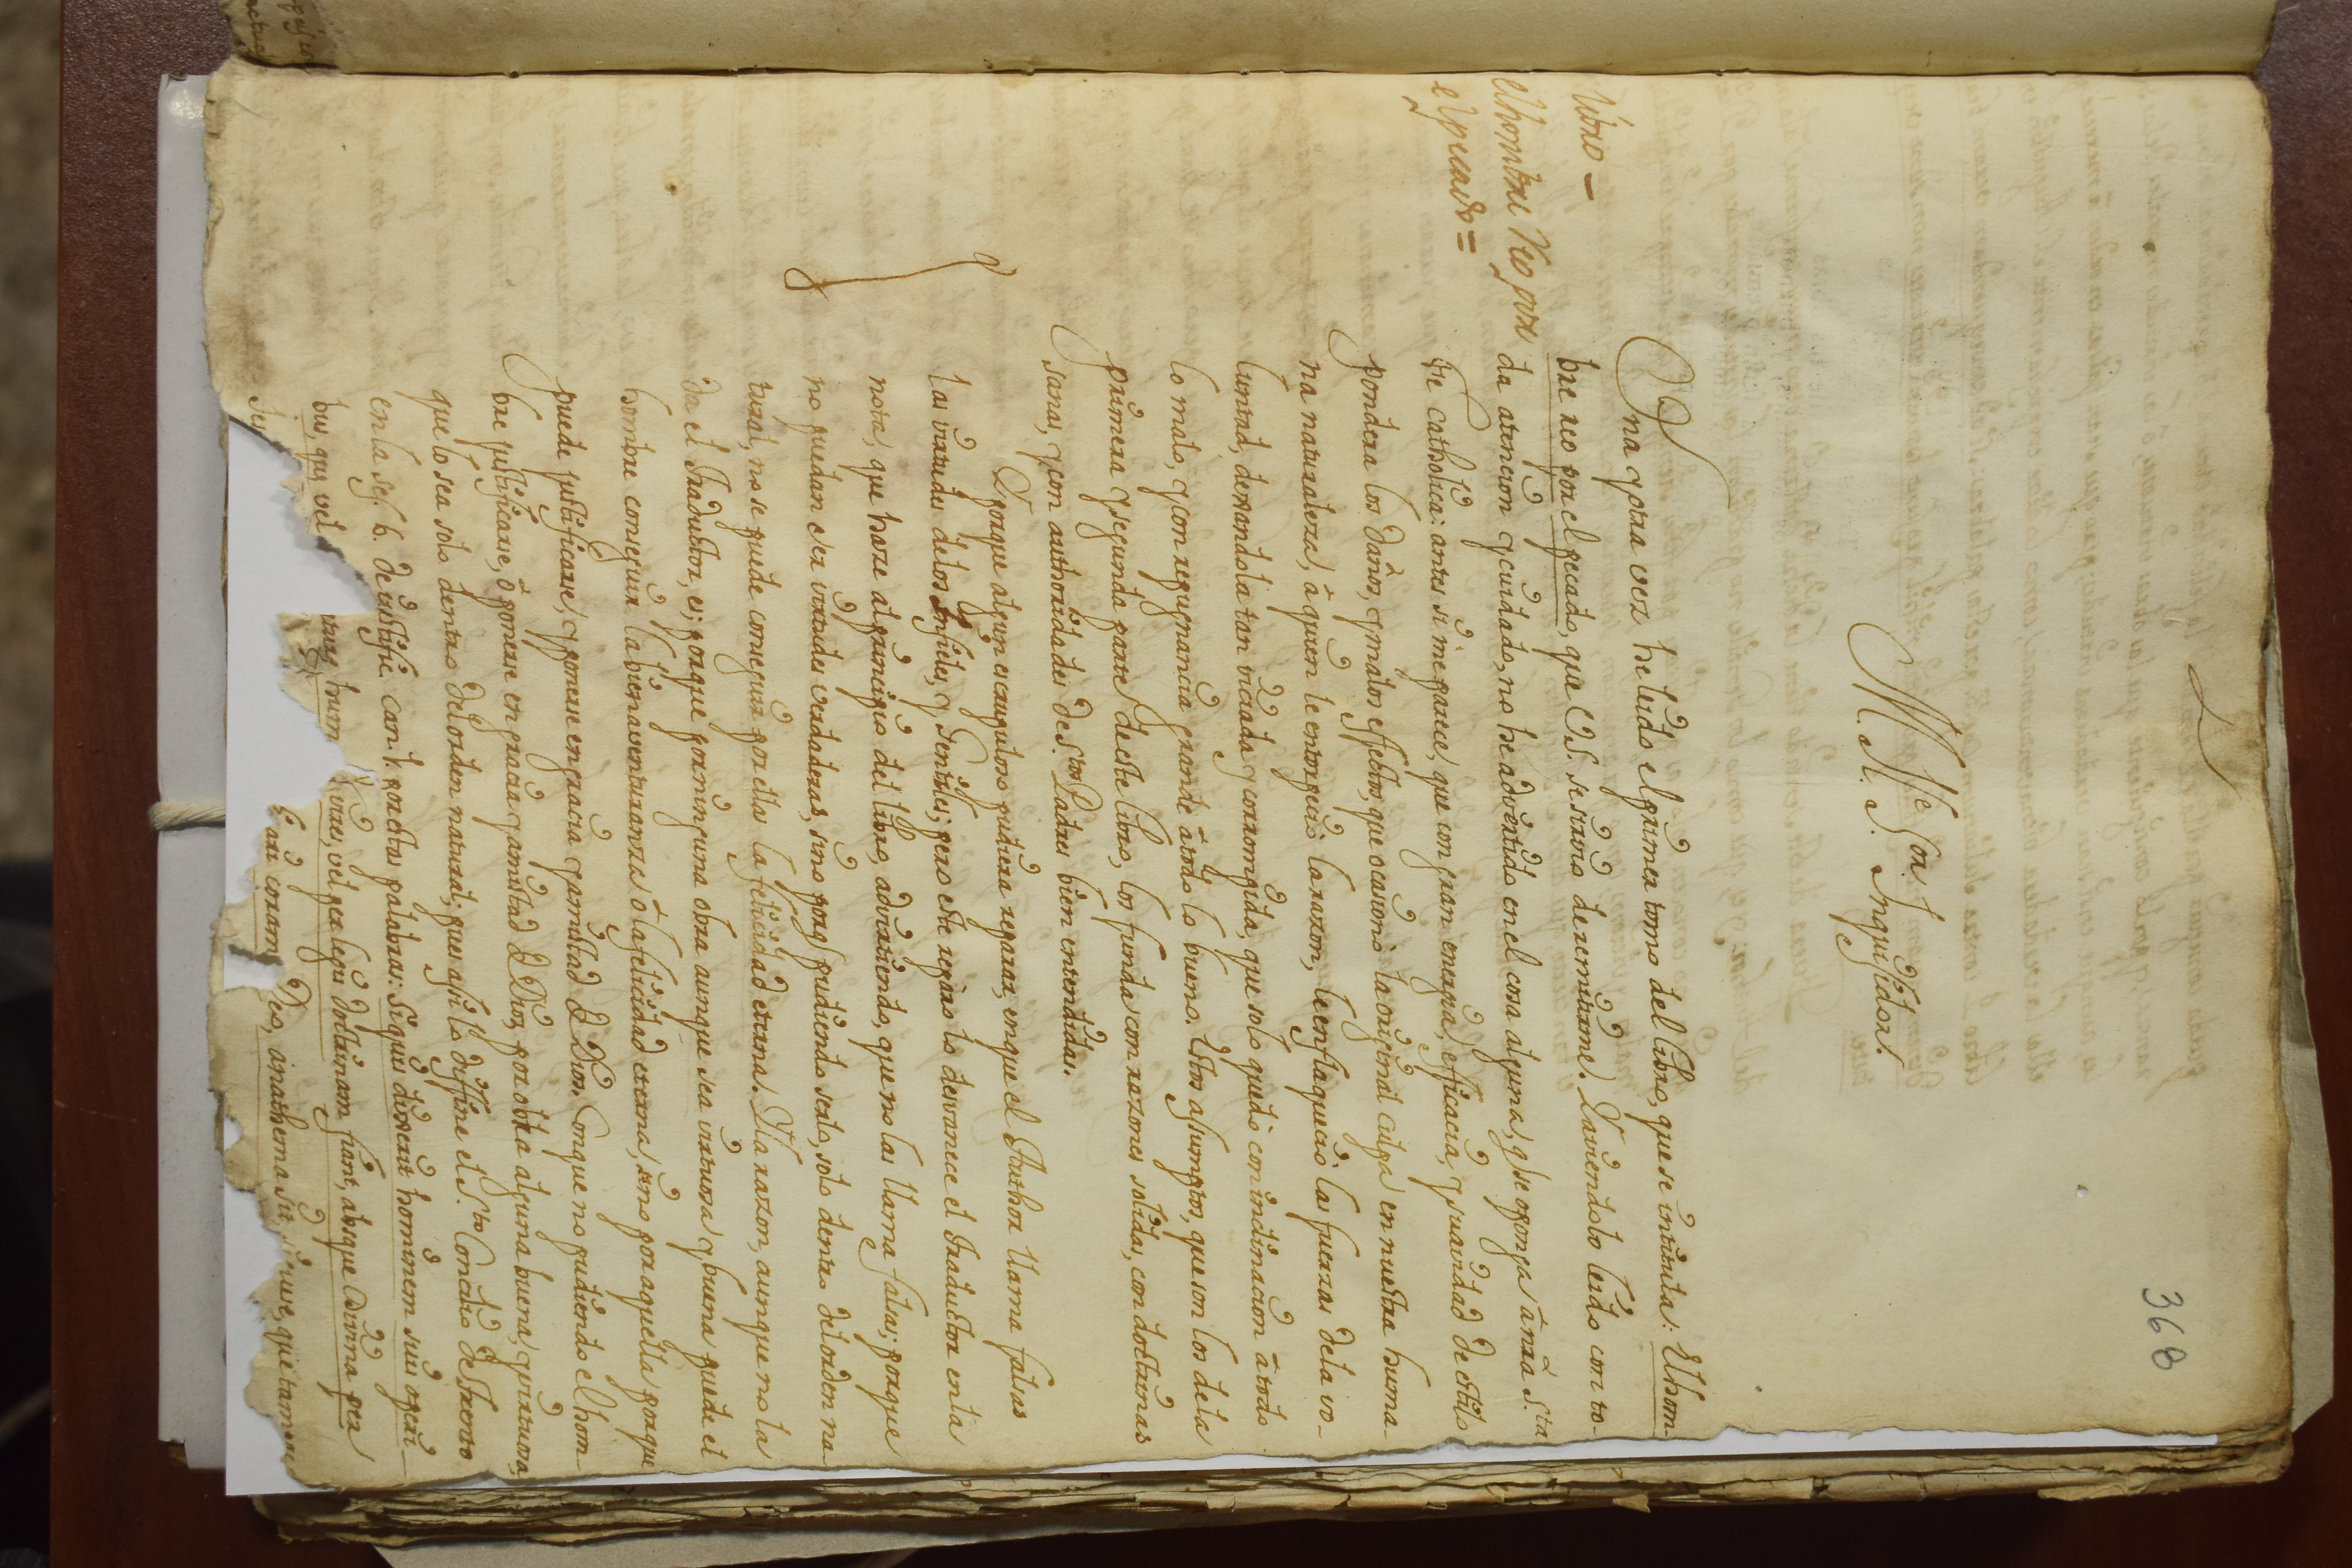 368
M. Iltre Sor. Inquisidor.
libro –
el hombre Reo por
el pecado =
Una y otra vez he leido el primer tomo del libro, que se intitula: El hom-
bre reo por el pecado, que V.S. se sirvio de remitirme. Y aviendolo leido con to-
da atencion y cuidado, no he advertido en el cosa alguna, q se oponga à nrã Sta
fee catholica: antes si me parece, que con gran energia, efficacia, y suavidad de estilo
pondera los daños, y malos effectos, que ocasionò la original culpa en nuestra huma-
na naturaleza, à quien le entorpeciò la razon, le enflaqueciò las fuerzas dela vo-
luntad, dexandola tan viciada y corrompida, que solo quedò con inclinacion à todo
lo malo, y con repugnancia grande à todo lo bueno. Estos assumptos, que son los dela
primera y segunda parte de este libro, los funda con razones solidas, con doctrinas
sanas, y con authoridades de Stos Padres bien entendidas.
Y porque algun escrupuloso pudiera reparar, en que el Author llama falsas
las virtudes delos Infieles, y Gentiles; pero este reparo lo desvanece el Traductor en la
nota, que haze al principio del libro, advirtiendo, que no las llama falsas; porque
no puedan ser virtudes verdaderas, sino porq pudiendo serlo, solo dentro del orden na
tural, no se puede conseguir por ellas la felicidad eterna. Y la razon, aunque no la
da el Traductor, es; porque por ninguna obra aunque sea virtuosa y buena puede el
hombre conseguir la bienaventuranza ò la felicidad eterna, sino por aquella, porque
puede justificarse, y ponerse en gracia y amistad de Dios. Conque no pudiendo el hom-
bre justificarse, ò ponerse en gracia y amistad de Dios, por obra alguna buena, y virtuosa,
que lo sea solo dentro del orden natural; pues assi lo diffine el Sto Concilio de Trento
en la ses. 6. de iustific. can. 1. por estas palabras: Siquis dixerit hominem suis operi-
bus, que vel turae, vel per legis doctrinam fiant, absque Divina per
coram Deo, anathema sit.